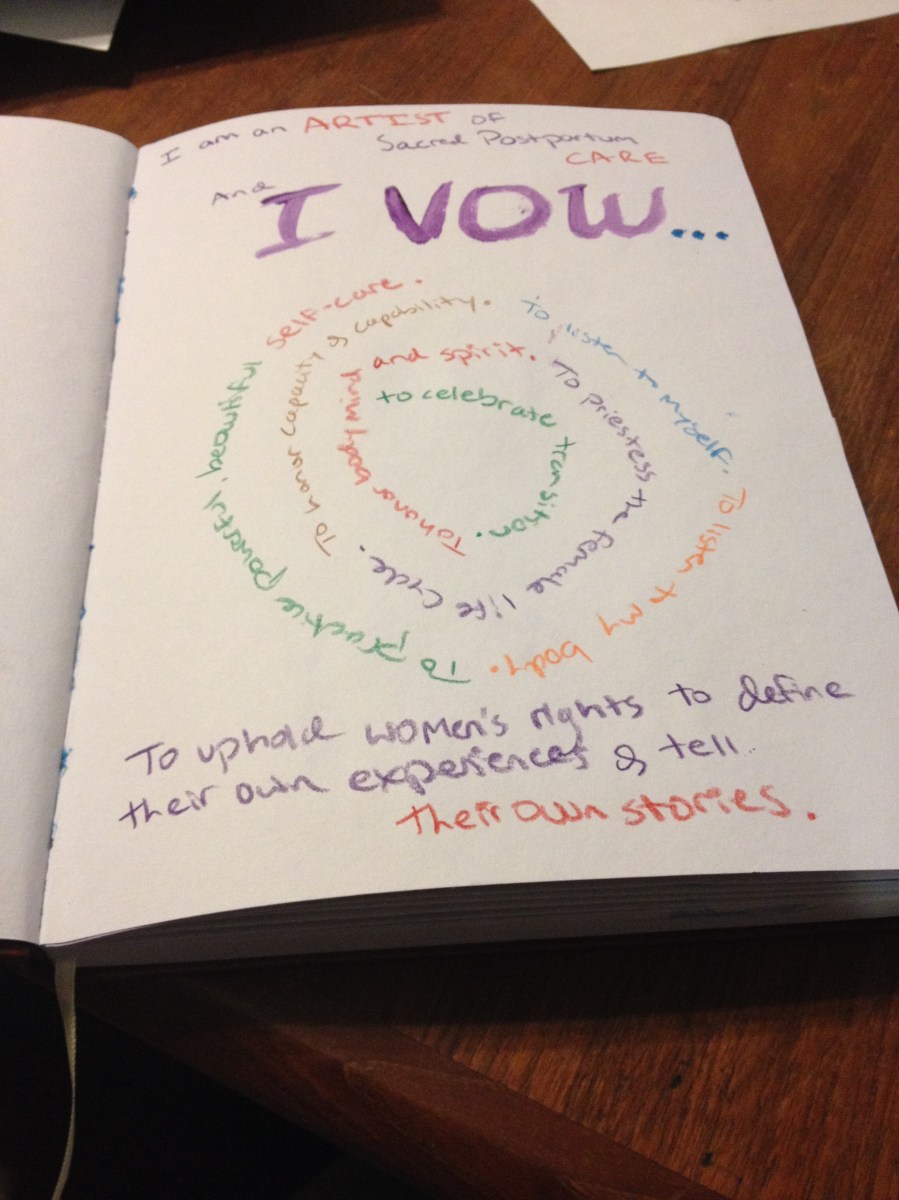 I am an ARTIST OF
Sacred Postpartum
CARE
And
I VOW...
to celebrate transition.
To honor body mind and spirit.
To priestess the female life cycle.
To honor capacity & capability.
To listen to myself.
To listen to my body.
To practice powerful, beautiful self-care.
To uphold women's rights to define
their own experiences & tell
their own stories.